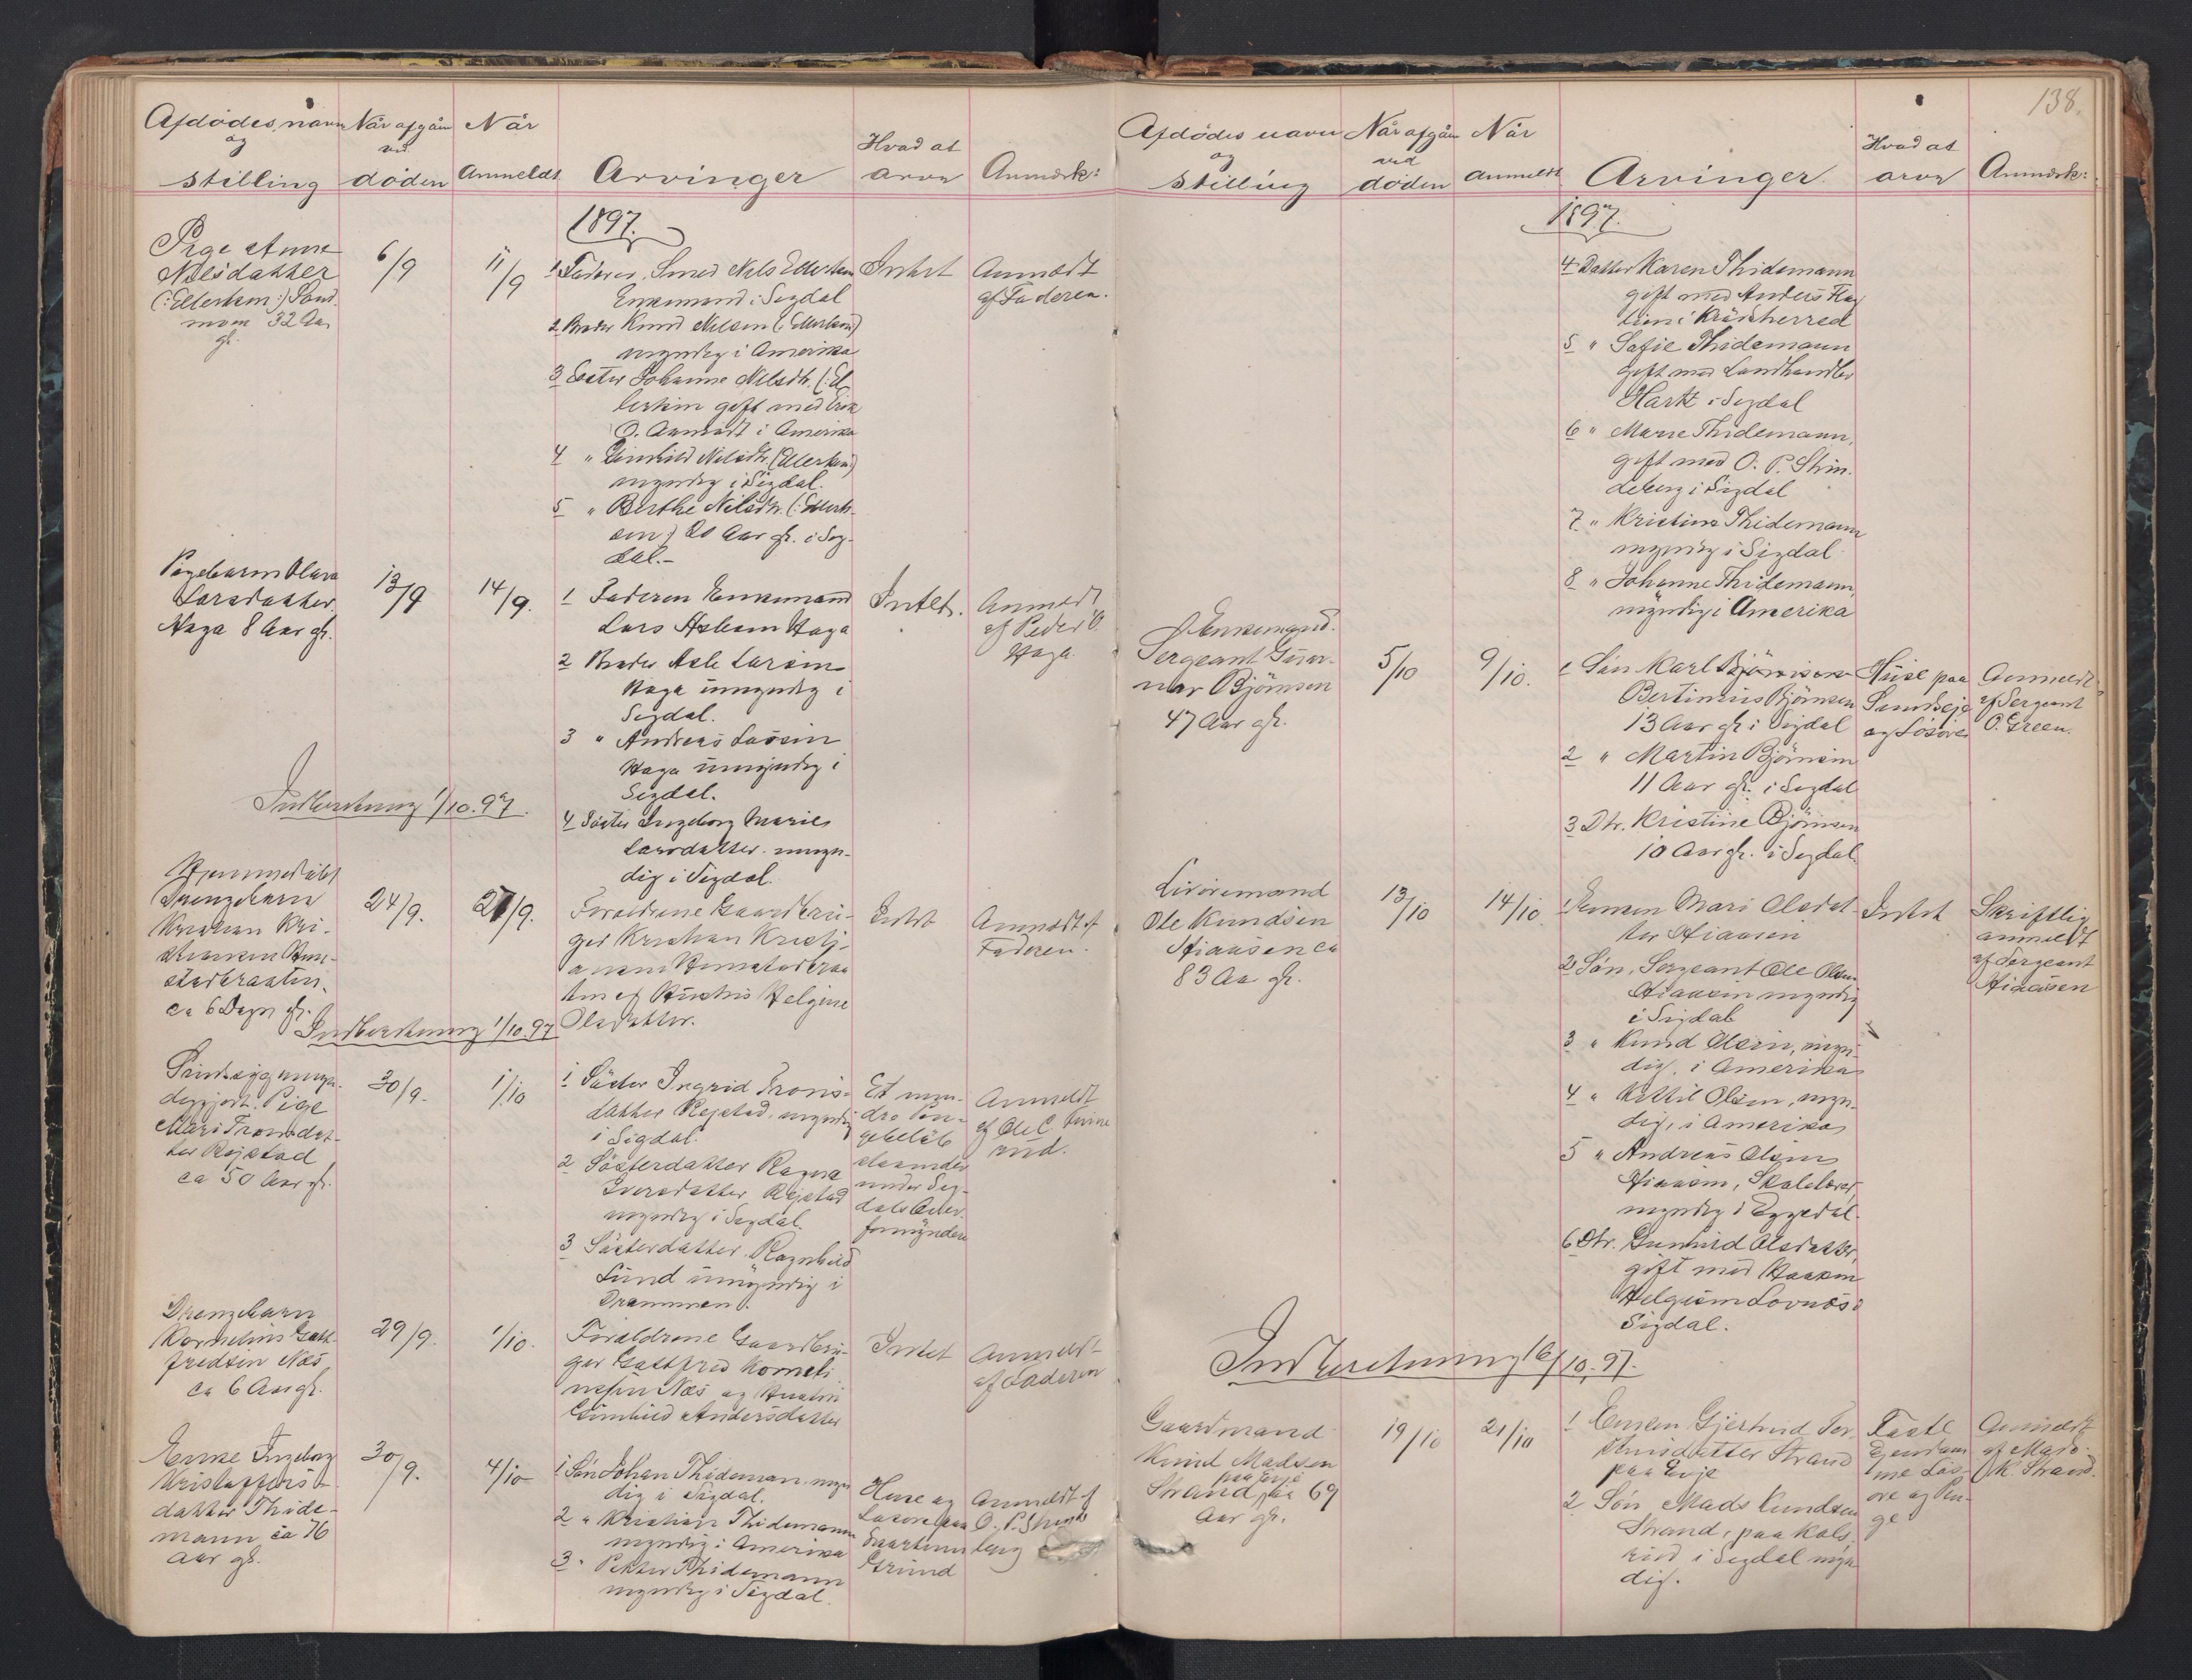 Afdödes navn
og
stilling
Når afgåen
ved
döden
Når
Anmeldt
Arvinger
Hvad at
arve
Anmærk:
1897.
Pige Anne
Nilsdatter
(: Ellerken :) Sand
moen 32 Aar
gl.
6/9
11/9
1 Faderen, Smed Nils Ellerken
Enkemand i Sigdal
2 Broder Knud Nilsen (: Ellerken)
myndig i Amerika
3 Söster Johanne Nilsdtr. (: El
lerken gift med Erik
O. Aamodt i Amerika
4 " Gunhild Nilsdtr. (Ellerken)
myndig i Sigdal.
5 " Berthe Nilsdtr. (: Ellerk-
en :) 20 Aar gl. i Sig-
dal.-
Intet
Anmeldt
af Faderen.
Pigebarn Olava
Larsdatter
Haga 8 Aar gl.
13/9
14/9.
1 Faderen Enkemand
Lars Aslesen Haga
2 Broder Asle Larsen
Haga umyndig i
Sigdal.
3 " Andreas Larsen
Haga umyndig i
Sigdal.
4 Söster Ingeborg Marie
Larsdatter. umyn-
dig i Sigdal.
Intet.
Anmeldt
af Peder O.
Haga.
Indberetning 1/10.97.
Hjemmedöbt
Drengebarn
Kristian Kri-
stiansen
ca 6 Dage gl.
24/9.
27/9.
Forældrene Gaardbru-
ger Kristian Kristi-
ansen
og Hustru Helgine
Olsdatter.
Intet
Anmeldt af
Faderen.
Indberetning 1/10.97
Sindssyg umyn-
diggjort Pige
Mari Tronsdat-
ter Rejstad
ca 50 Aar gl.
30/9.
1/10
1 Söster Ingrid Trons-
datter Rejstad, myndig
i Sigdal.
2 Sösterdatter Ragna
Iversdatter Rejstad
myndig i Sigdal.
3 Sösterdatter Ragnhild
Lund umyndig i
Drammen.
Et min-
dre Pen-
gebelöb
staaende
under Sig-
dals Over-
formynderi
Anmeldt
af Ole C.
rud.
Drengebarn
Kornelius Gott-
fredsen Næs
ca 6 Aar gl.
29/9.
1/10.
Forældrene Gaardbru-
ger Gottfred Korneli
usen Næs og Hustru
Gunhild Andersdatter
Intet
Anmeldt
af Faderen
Enke Ingeborg
Kristoffers-
datter Thide-
mann ca 76
Aar gl.
30/9.
4/10
1 Sön Johan Thideman, myn
dig i Sigdal.
2 " Kristian Thidemann
myndig i Amerika
3 " Petter Thidemann
myndig i Sigdal.
Huse og
Lösöre paa
Grund
Anmeldt af
O. P. Strinde
berg
138.
Afdödes navn
og
stilling
Når afgåen
ved
döden
Når
anmeldt
Arvinger
Hvad at
arve
Anmærk:
1897.
4 Datter Karen Thidemann
gift med Anders
i Krödsherred
5 " Sofie Thidemann
gift med Landhandler
Hartz i Sigdal
6 " Marie Thidemann,
gift med O. P. Strin-
deberg i Sigdal
7 " Kristine Thidemann
myndig i Sigdal
8 " Johanne Thidemann,
myndig i Amerika
Enkemand.
Sergeant Gun-
nar Björnsen
47 Aar gl.
5/10
9/10.
1 Sön Karl
Bertinius Björnsen
13 Aar gl. i Sigdal
2 " Martin Björnsen
11 Aar gl. i Sigdal
3 Dtr. Kristine Björnsen
10 Aar gl. i Sigdal
Huse paa
og Lösöre
Anmeldt
af Sergeant
O. Green.
Livöremand
Ole Knudsen
Aiaasen ca
83 Aar gl.
13/10
14/10
1 Enken Mari Olsdat-
ter Aiaasen
2 Sön, Sergeant Ole Olsen
Aiaasen myndig
i Sigdal
3 " Knud Olsen, myn-
dig, i Amerika
4 " Kittil Olsen, myn-
dig, i Amerika
5 " Andreas Olsen
Aiaasen, Skolelærer,
myndig i Eggedal.
6 Dtr. Gunhild Olsdatter,
gift med Haaken
Helgesen Lovnæs i
Sigdal.
Intet
Skriftlig
anmeldt
af Sergeant
Aiaasen
Indberetning 16/10.97.
Gaardmand
Knud Madsen
Strand paa Evje
ca 69
Aar gl.
19/10
21/10
1 Enken Gjertrud Tor-
datter Strand
paa Evje
2 Sön Mads Knudsen
Strand, paa Kols-
rud i Sigdal myn
dig.
Faste
Ejendom
me Lös-
öre og Pen-
ge
Anmeldt
af Mads
K. Strand.